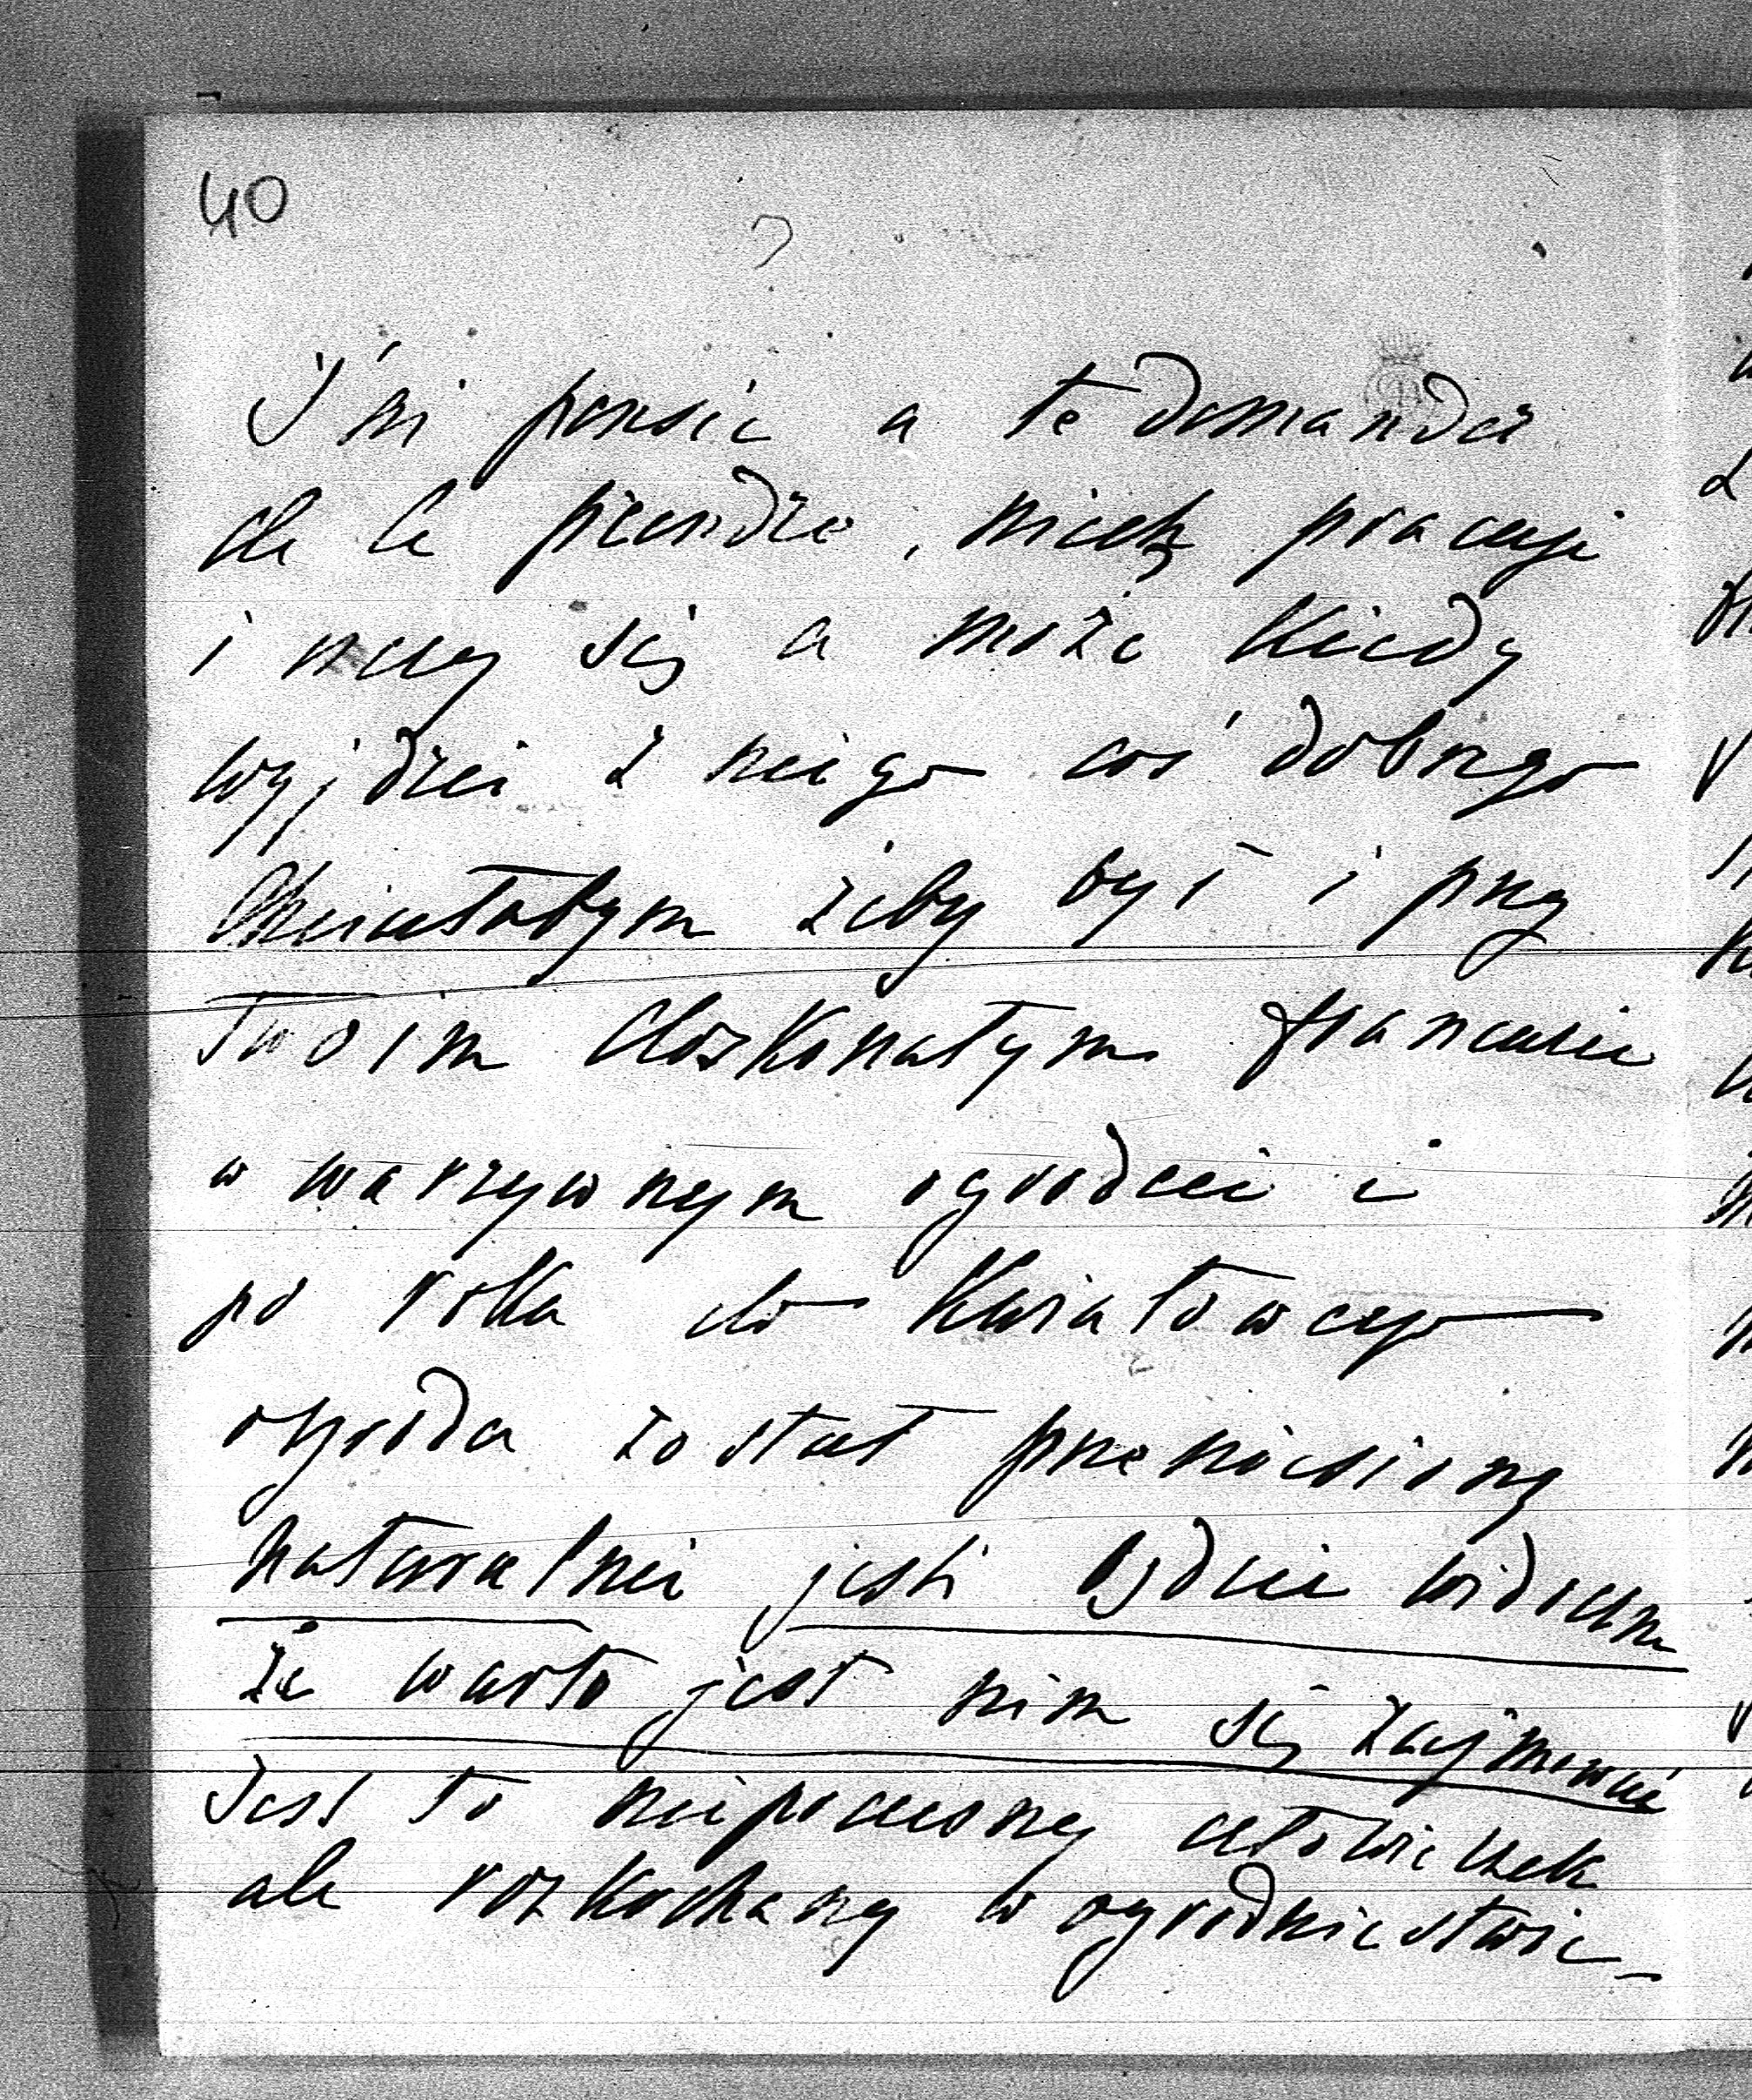 40
J'ai pensé a te demander
de le prendre, niech pracuje
i uczy się a może kiedy
wyjdzie z niego coś dobrego
Chciałabym żeby był i przy
Twoim doskonałym francuzie
w warzywnym ogrodzie i
po roku do kwiatowego
ogrodu został przeniesiony
naturalnie jeśli będzie widoczne
że warto jest nim się zajmować
Jest to niepoczesny człowieczek
ale rozkochany w ogrodnictwie_